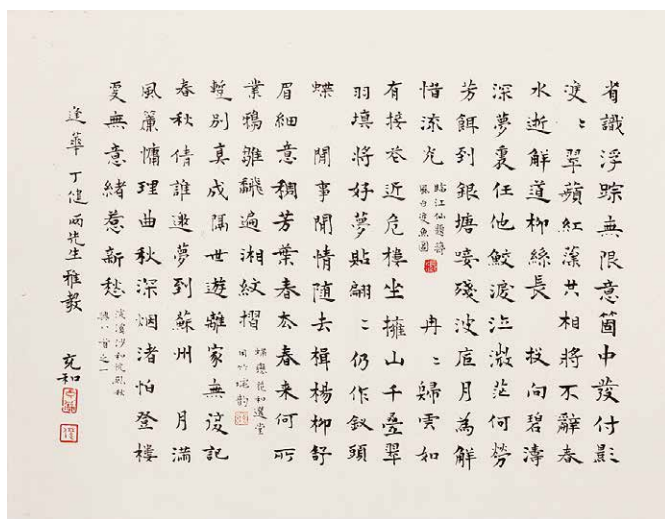 省識浮踪無限意箇中發付影
雙〻翠蘋紅藻共相將不辭春
水逝解道柳絲長 投向碧濤
深夢裏任他鮫淚泣微茫何勞
芳餌到銀塘唼殘波底月為解
惜流光
臨江仙題蔣
風白雙魚圖
冉〻歸雲如
有接近危樓坐擁山千疊翠
羽填將好夢貼翩〻仍作釵頭
蝶 閒事閒情隨去楫楊柳舒
眉細意稠芳葉春去春來何所
業鴉雛飜遍湘紋摺
蝶戀花和選堂
用竹垞韵
蹔別真成隔世遊離家無復記
春秋倩誰邀夢到蘇州 月滿
風簾慵理曲秋深烟渚怕登樓
更無意緒惹新愁
浣溪沙和秋
八首之一
華 丁健兩先生雅教
充和